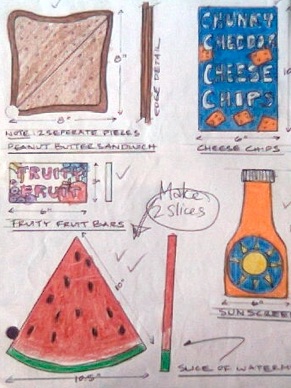 8"
8"
EDGE DETAIL
NOTE: 2 SEPERATE PIECES
PEANUT BUTTER SANDWICH
CHUNKY
CHEDDAR
CHEESE
CHIPS
6"
CHEESE CHIPS
FRUITY
FRUIT
3"
6"
FRUITY FRUIT BARS
Make
2 Slices
10"
10.5"
6"
SUNSCREE
SLICE OF WATERM